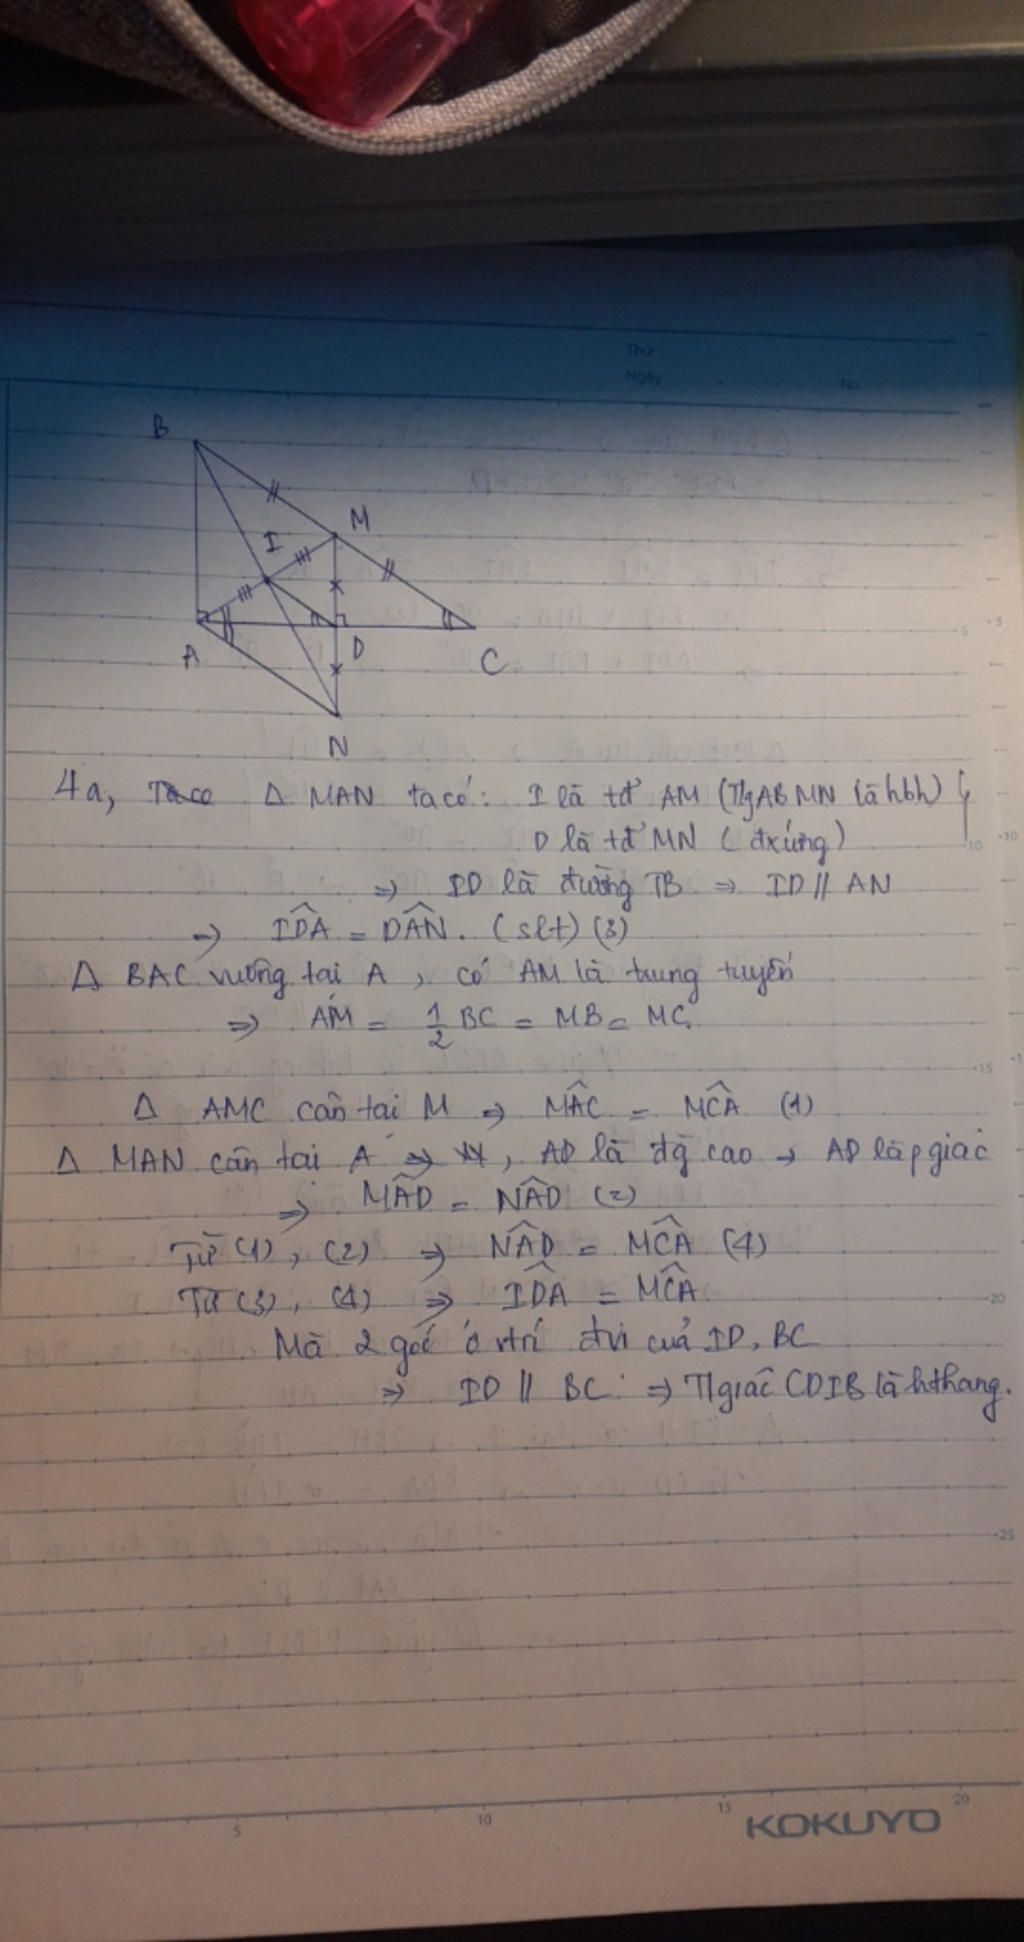 Thứ
Ngày No.
B
M
I
A
D
C
N
4a, Taco Δ MAN ta có: I là tđ AM (TgABMN là hbh)
D là tđ MN (đxứng)
⇒ ID là đường TB ⇒ ID // AN
⇒ IDA^ = DAN^. (slt) (3)
Δ BAC vuông tai A, có AM là trung tuyến
⇒ AM = 1/2 BC = MB = MC
Δ AMC cân tai M ⇒ MAC^ = MCA^ (1)
Δ MAN cân tai A, AD là đg cao → AD là pgiác
⇒ MAD^ = NAD^ (2)
Từ (1), (2) ⇒ NAD^ = MCA^ (4)
Từ (3), (4) ⇒ IDA^ = MCA^
Mà 2 góc ở vtrí đvi của ID, BC
⇒ ID // BC ⇒ Tgiác CDIB là hthang.
5
10
15
20
25
5 10 15 20
KOKUYO